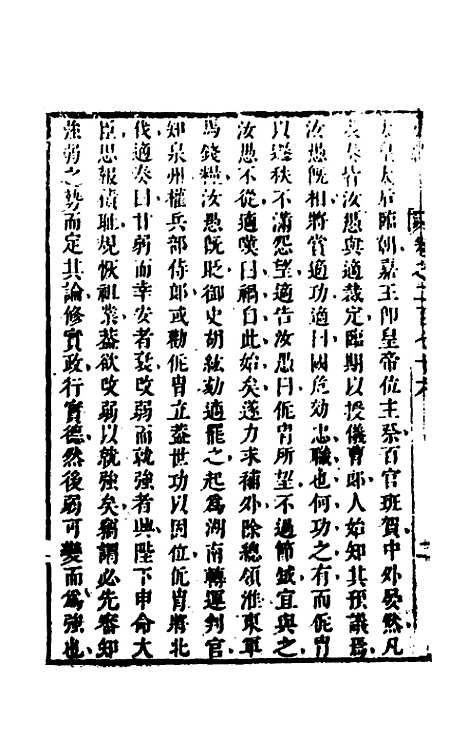 太皇太后臨朝嘉王卽皇帝位主䘮百官班賀中外晏然凡
表奏皆汝愚與適裁定臨期以授儀曹郎人始知其預議焉
汝愚旣相將賞適功適曰國危効忠職也何功之有而侂冑
以遷秩不滿怨望適告汝愚曰侂冑所望不過節鉞宜與之
汝愚不從適嘆曰禍自此始矣遂力求補外除總領淮東軍
馬錢糧汝愚旣貶御史胡紘劾適罷之起爲湖南轉運判官
知泉州權兵部侍郎或勸侂冑立蓋世功以固位侂冑將北
伐適奏曰甘弱而幸安者衰改弱而就強者興陛下申命大
臣思報積耻規恢祖業蓋欲改弱以就強矣竊謂必先審知
強弱之勢而定其論修實政行實德然後弱可變而爲強也